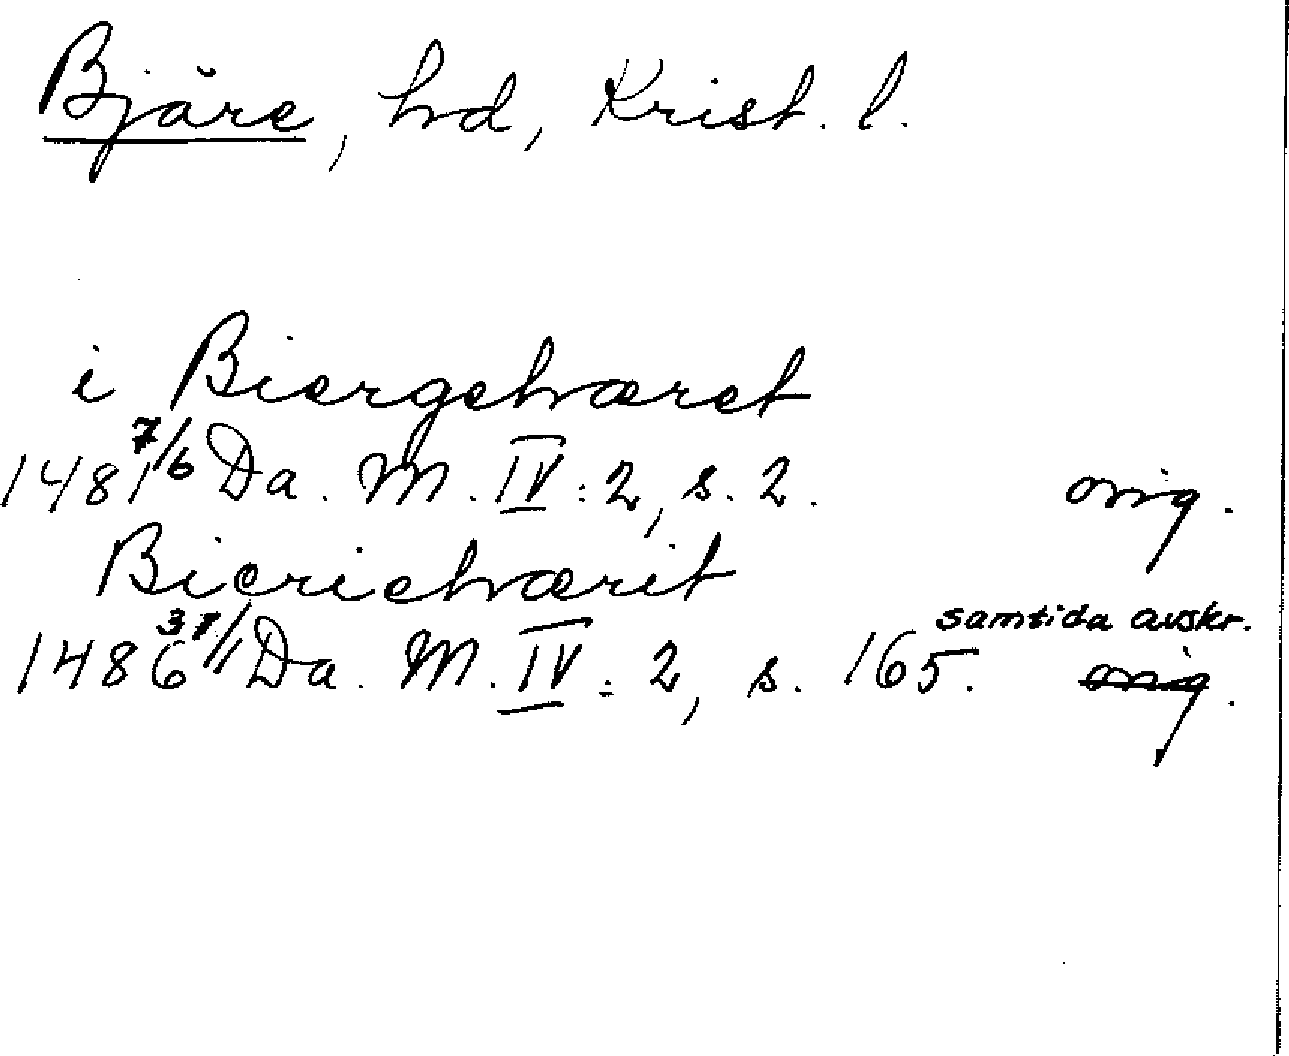 Bjäre, hd, Krist. l.
i Biergehæret
1481 7/6 Da. M. IV:2, s. 2. orig.
Bieriehærit
samtida avskr.
1486 31/1 Da. M. IV:2, s. 165. orig.